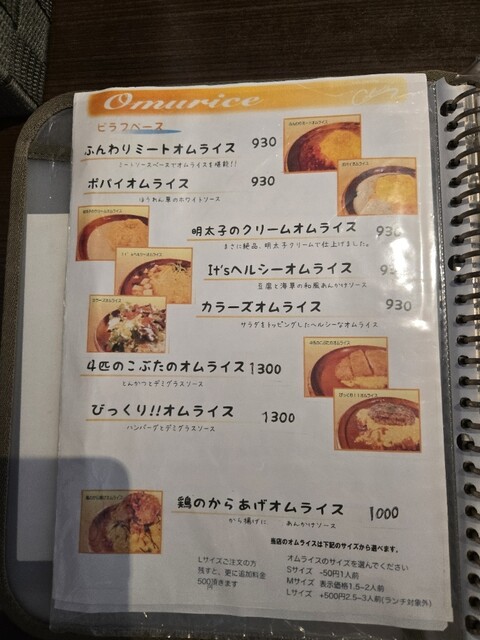 Omurice
ピラフベース
ふんわりミートオムライス 930
ミートソースベースでオムライスを堪能!!
ポパイオムライス 930
ほうれん草のホワイトソース
明太子のクリームオムライス 930
まさに絶品、明太子クリームで仕上げました。
It'sヘルシーオムライス
豆腐と海草の和風あんかけソース
カラーズオムライス 930
サラダをトッピングしたヘルシーなオムライス
4匹のこぶたのオムライス 1300
とんかつとデミグラスソース
びっくり!!オムライス 1300
ハンバーグとデミグラスソース
鶏のからあげオムライス 1000
から揚げに あんかけソース
当店のオムライスは下記のサイズから選べます。
Lサイズご注文の方
残すと、更に追加料金
500頂きます
円
オムライスのサイズを選んでください
Sサイズ -50円1人前
Mサイズ 表示価格1.5~2人前
Lサイズ +500円2.5~3人前(ランチ対象外)